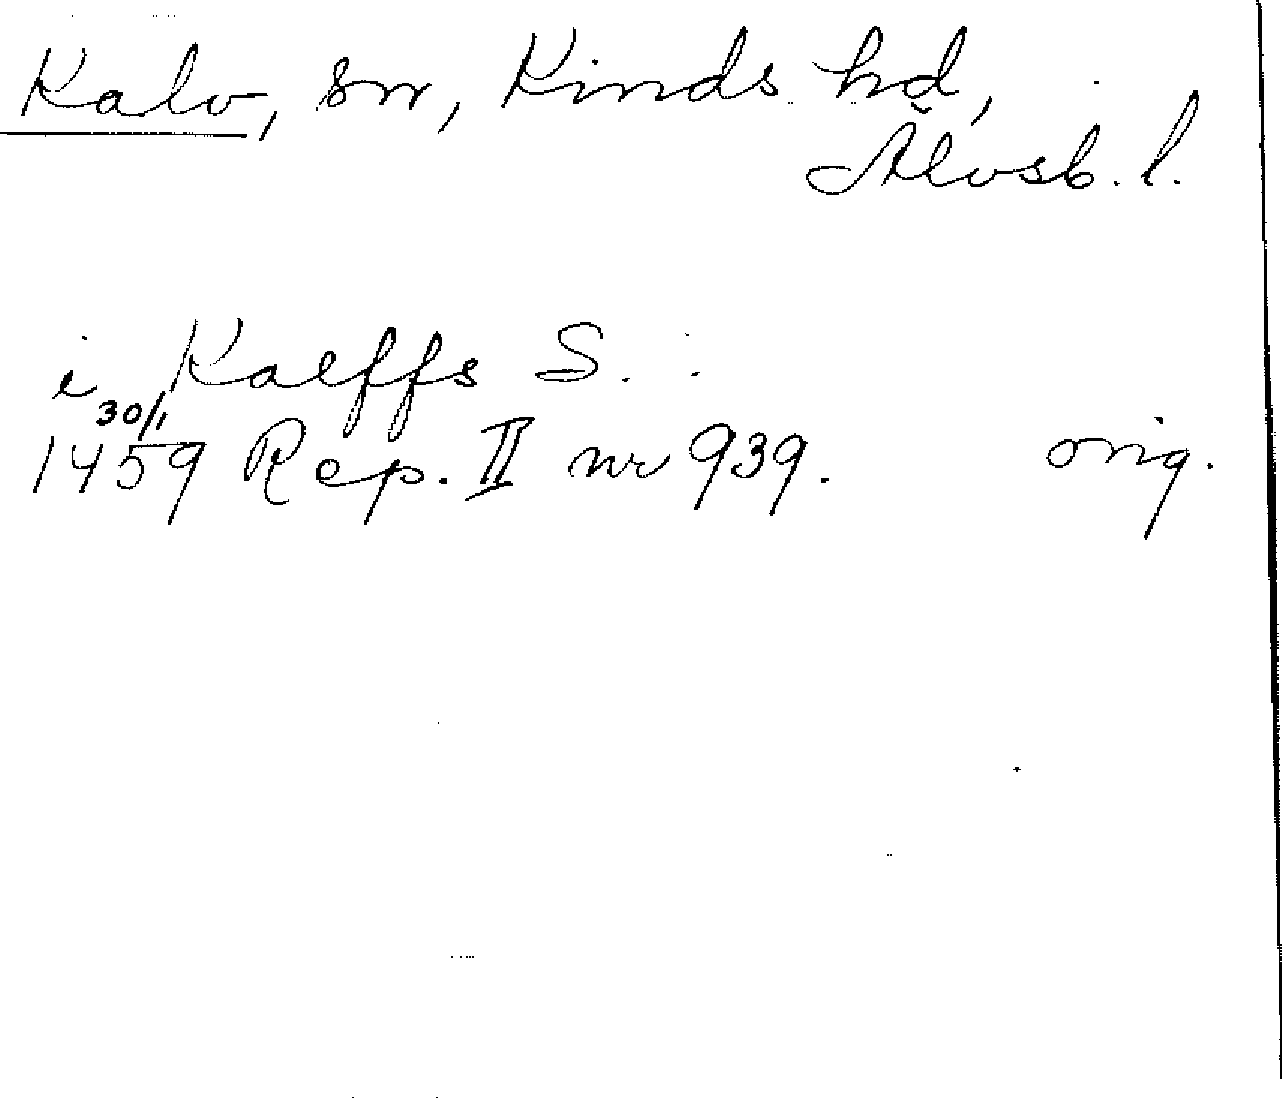 Kalv, sn, Kinds hd,
Älvsb. l.
i Kalffs S.
30/1
1459 Rep. II nr 939. orig.